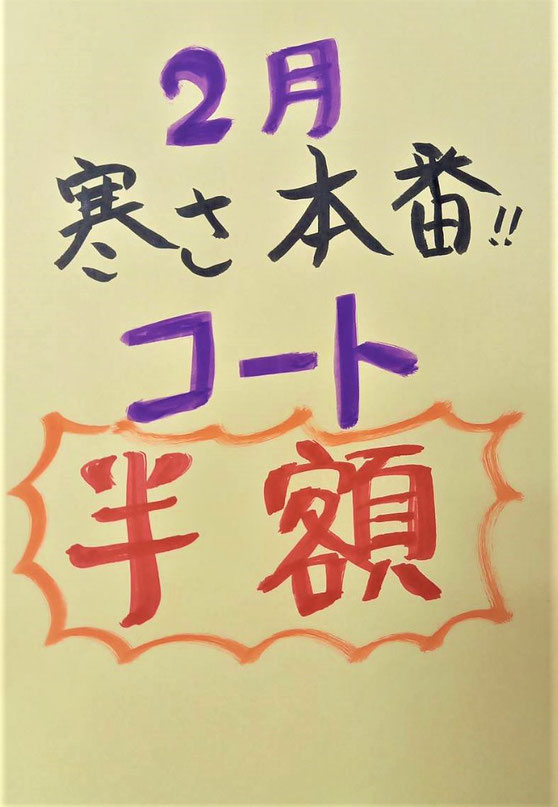 2月
寒さ本番!!
コート
半額